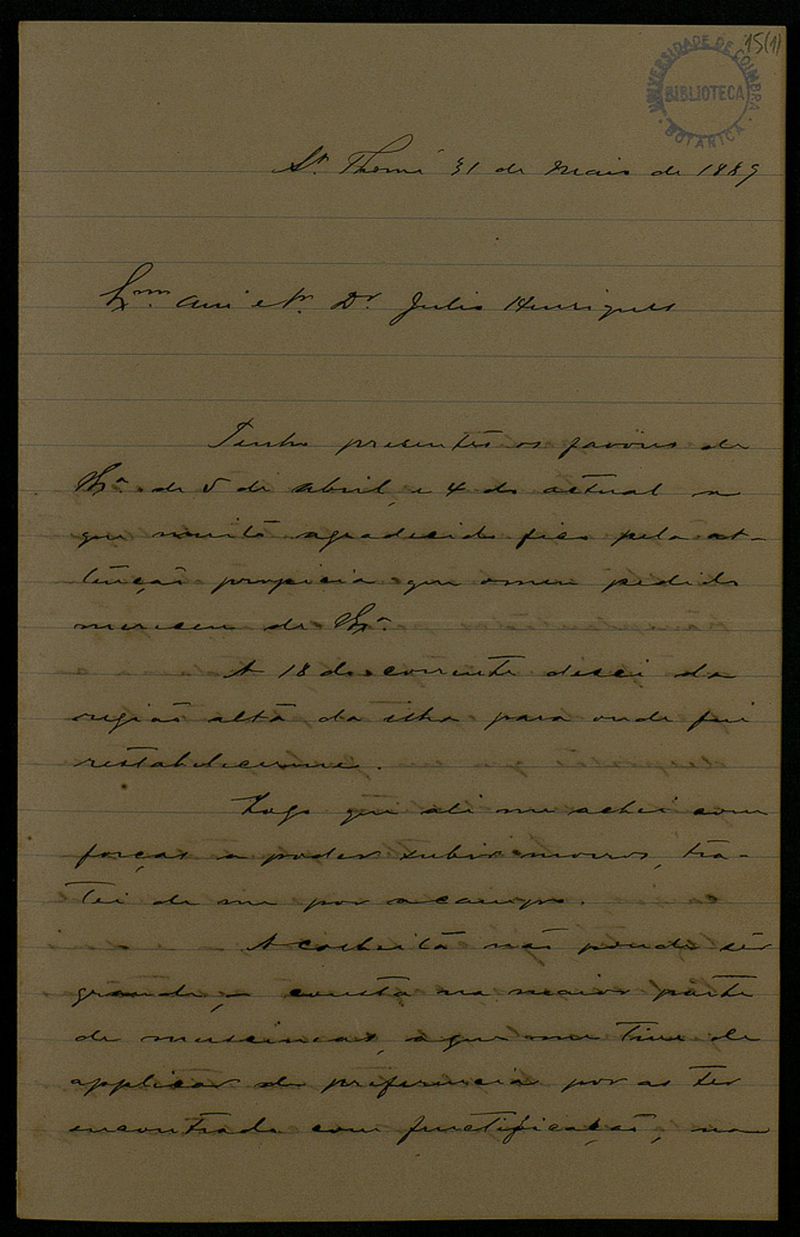 15(1)
UNIVERSIDADE DE COIMBRA
BIBLIOTECA
BOTANICA
S. Thomé 31 de Maio de 1889
Exmo. Am. e Sr. Dr. Julio Henriques
Tenho presentes os favores de
V. Exa. de 5 de abril, e 4 do actual a
que muito agradecido fico pela at-
tenção propicia que o meu pedido
mereceu de V. Exa.
A 18 do corrente desci da
região alta da ilha para onde fui
restabelecerme.
Logo que ali me achei com
forças a poder subir morros, tra-
tei de me por a campo.
A colheita não poude ser
grande, – consta na maior parte
de muscineas, a que me tive de
applicar de preferencia por as ter
encontrado com fructificação, na